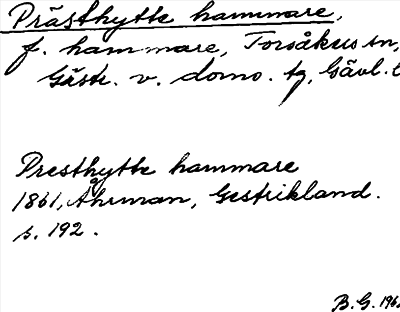 Prästhytte hammare,
f. hammare, Torsåkers sn,
Gästr. v. doms. tg, Gävl. l
Presthytte hammare
1861, Åhrman, Gestrikland.
s. 192.
B. G. 196